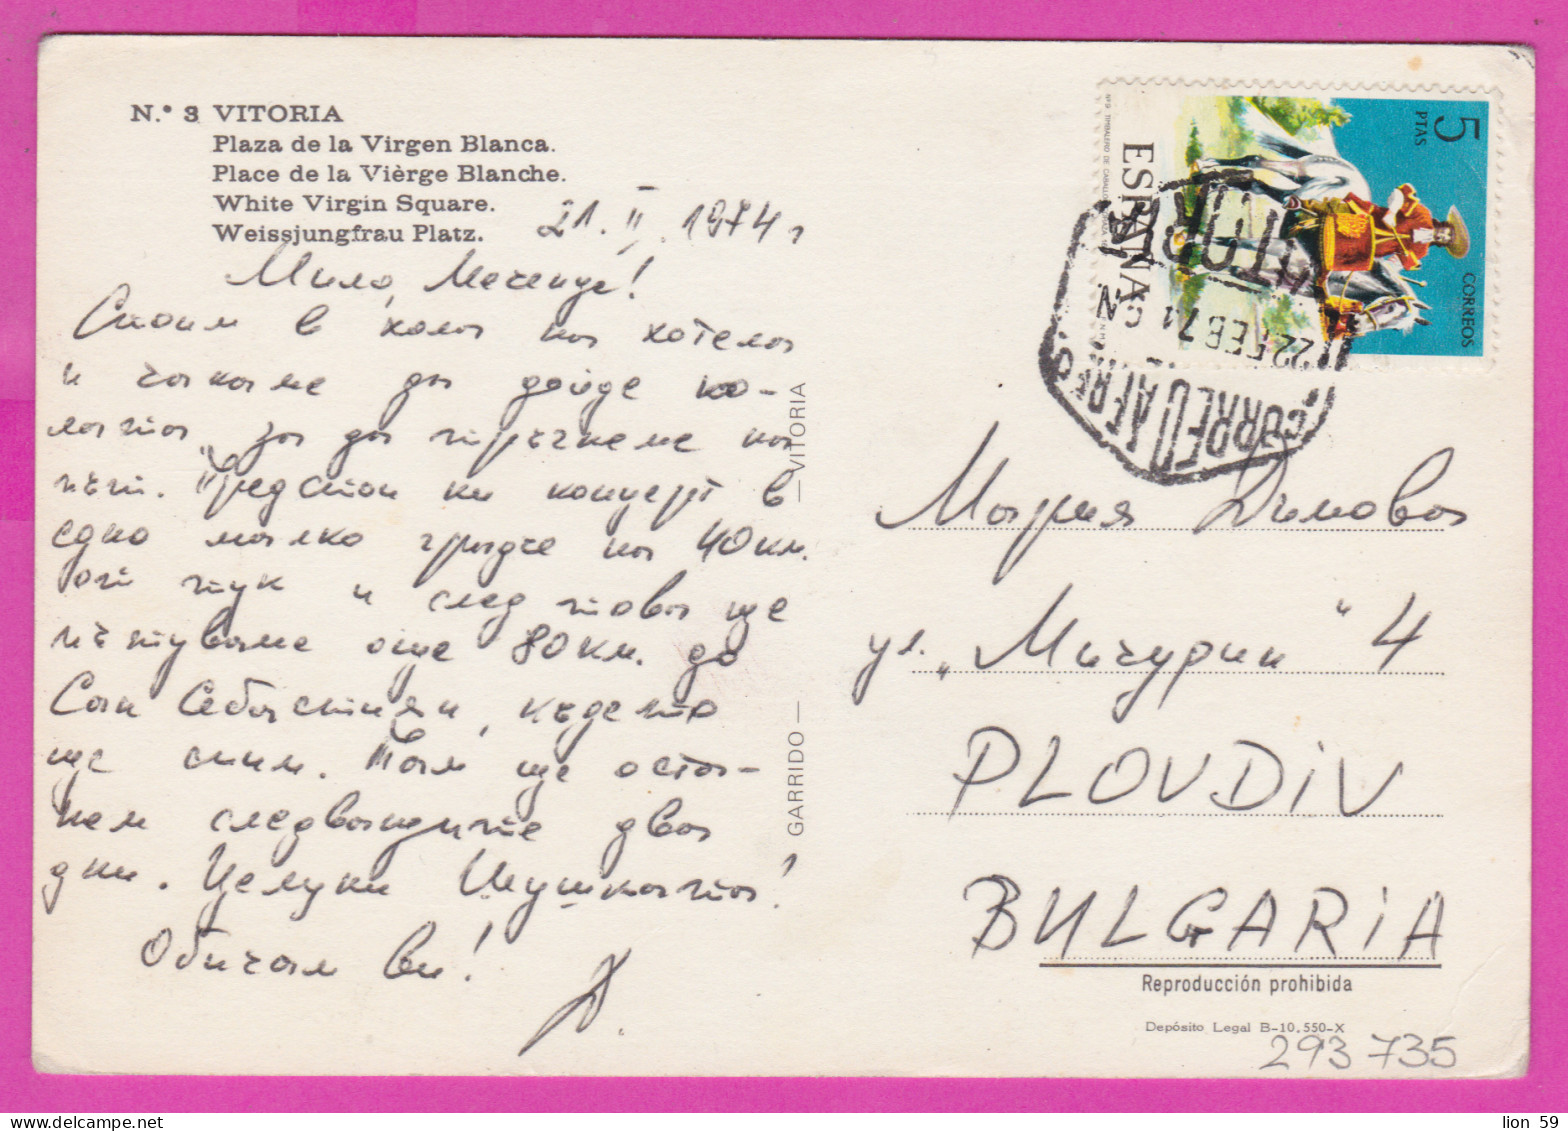 N.° 3 VITORIA
Plaza de la Virgen Blanca.
Place de la Vièrge Blanche.
White Virgin Square.
Weissjungfrau Platz.
21.II.1974 г
Мило Меченце!
Стоим в хола на хотела
и чакаме да дойде ко-
лата за да тръгнеме на
път. Предстои ни концерт в
едно малко градче на 40 км.
от тук и след това ще
пътуваме още 80 км. до
Сан Себастиян, където
ще спим. Там ще оста-
нем следващите два
дни. Целуни Илушката!
Обичам ви!
Д.
GARRIDO — — VITORIA
5 PTAS
CORREOS
ESPAÑA
VITORIA
22 FEB 74
CORREO AEREO
Мария Димова
ул. „Мичурин" 4
PLOVDIV
BULGARIA
Reproducción prohibida
Depósito Legal B-10.550-X
293735
lion 59